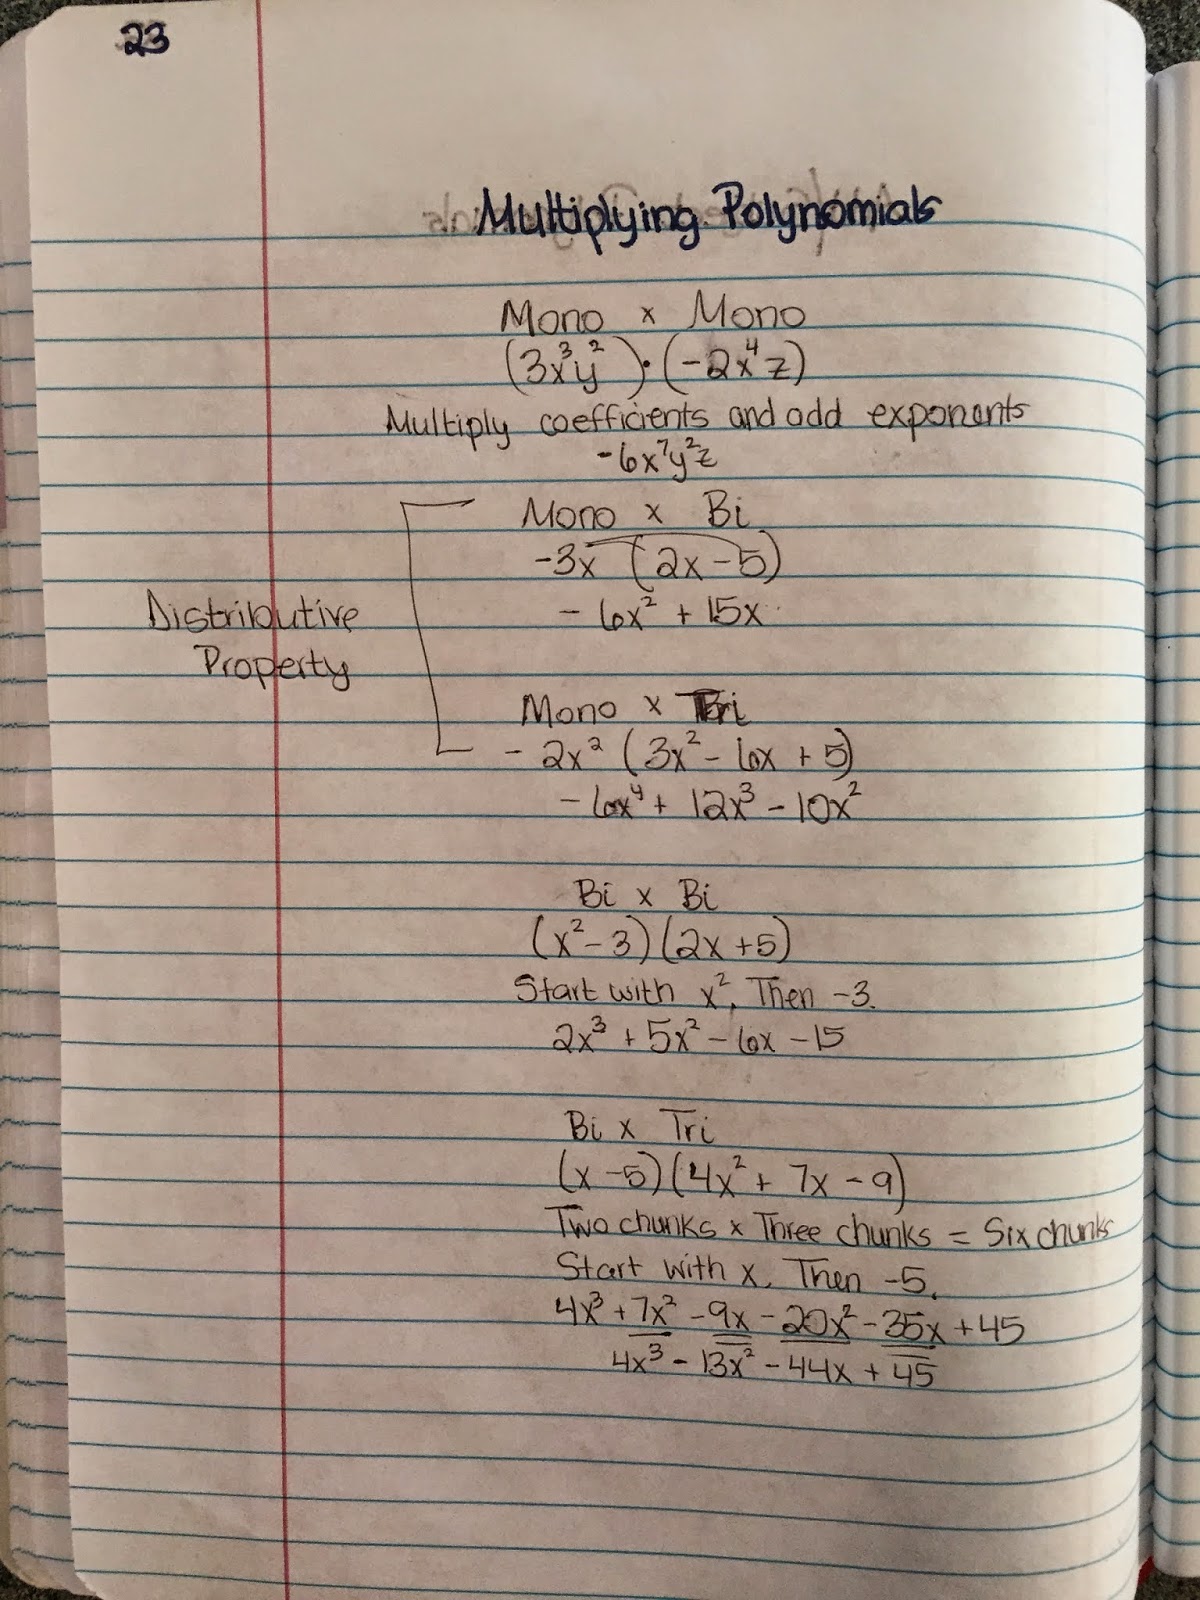 23
Multiplying Polynomials
Mono x Mono
(3x³y²)·(-2x⁴z)
Multiply coefficients and add exponents
-6x⁷y²z
Mono x Bi
-3x (2x-5)
- 6x² + 15x
Distributive
Property
Mono x Tri
- 2x² (3x² - 6x + 5)
- 6x⁴ + 12x³ - 10x²
Bi x Bi
(x²-3)(2x+5)
Start with x², Then -3.
2x³ + 5x² - 6x - 15
Bi x Tri
(x -5)(4x² + 7x - 9)
Two chunks x Three chunks = Six chunks
Start with x, Then -5.
4x³ + 7x² - 9x - 20x² - 35x + 45
4x³ - 13x² - 44x + 45